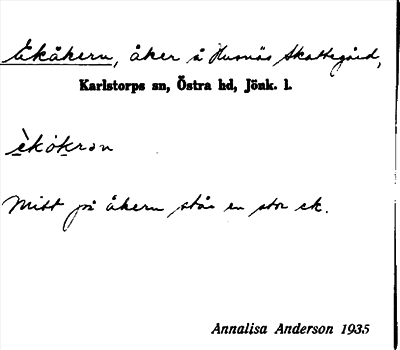 Ekåkern, åker å Husnäs Skattegård,
Karlstorps sn, Östra hd, Jönk. l.
èkåkrən
Mitt på åkern står en stor ek.
Annalisa Anderson 1935